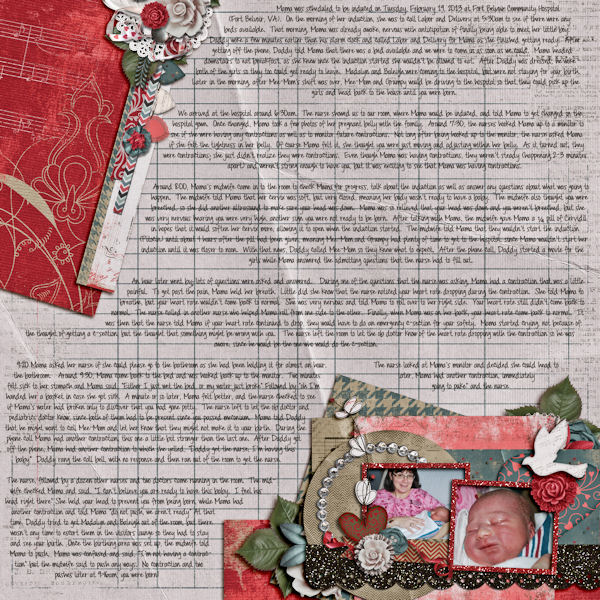 Mama was scheduled to be induced on Tuesday, February 19, 2013 at Fort Belvoir Community Hospital
(Fort Belvoir, VA). On the morning of her induction, she was to call Labor and Delivery at 5:30am to see if there were any
beds available. That morning, Mama was already awake, nervous with anticipation of finally being able to meet her little boy.
Daddy woke a few minutes earlier than his alarm clock and called Labor and Delivery for Mama as she finished getting ready. After
getting off the phone, Daddy told Mama that there was a bed available and we were to come in as soon as we could. Mama headed
downstairs to eat breakfast, as she knew once the induction started she wouldn't be allowed to eat. After Daddy was dressed, he woke
both of the girls so they too could get ready to leave. Madalun and Baleigh were coming to the hospital, but were not staying for your birth.
Later in the morning, after Mee-Mom's shift was over, Mee-Mom and Grumpy would be driving to the hospital so that they could pick up the
girls and head back to the house until you were born.
We arrived at the hospital around 6:30am. The nurse showed us to our room, where Mama would be induced, and told Mama to get changed in the
hospital gown. Once changed, Mama took a few photos of her pregnant belly with the family. Around 7:30, the nurse hooked Mama up to a monitor to
see if she were having any contractions as well as to monitor future contractions. Not long after being hooked up to the monitor, the nurse asked Mama
if she felt the tightness in her belly. Of course Mama felt it, she thought you were just moving and adjusting within her belly. As it turned out, they
were contractions; she just didn't realize they were contractions. Even though Mama was having contractions, they weren't steady (happening 2-5 minutes
apart) and weren't strong enough to have you, but it was exciting to see that Mama was having contractions.
Around 8:00, Mama's midwife came in to the room to check Mama for progress, talk about the induction as well as answer any questions about what was going to
happen. The midwife told Mama that her cervix was soft, but very closed, meaning her body wasn't ready to have a baby. The midwife also thought you were
breeched, so she did another ultrasound to make sure your head was down. Mama was so relieved that your head was down and you weren't breeched, but she
was very nervous hearing you were very high, another sign you were not ready to be born. After talking with Mama, the midwife gave Mama a 1/4 pill of Cervidil
in hopes that it would soften her cervix more, allowing it to open when the induction started. The midwife told Mama that they wouldn't start the induction
(Pitocin) until about 4 hours after the pill had been given, meaning Mee-Mom and Grumpy had plenty of time to get to the hospital, since Mama wouldn't start her
induction until it was closer to noon. With that news, Daddy called Mee-Mom so they knew what to expect. After the phone call, Daddy started a movie for the
girls while Mama answered the admitting questions that the nurse had to fill out.
An hour later went by, lots of questions were asked and answered. During one of the questions that the nurse was asking, Mama had a contraction that was a little
painful. To get past the pain, Mama held her breath. Little did she know that the nurse noticed your heart rate dropping during the contraction. She told Mama to
breathe, but your heart rate wouldn't come back to normal. She was very nervous and told Mama to roll over to her right side. Your heart rate still didn't come back to
normal. The nurse called in another nurse who helped Mama roll from one side to the other. Finally, when Mama was on her back, your heart rate came back to normal. It
was then that the nurse told Mama if your heart rate continued to drop, they would have to do an emergency c-section for your safety. Mama started crying not because of
the thought of getting a c-section, but the thought that something might be wrong with you. The nurse left the room to let the ob doctor know of the heart rate dropping with the contraction so he was
aware, since he would be the one who would do the c-section.
9:20 Mama asked her nurse if she could please go to the bathroom as she had been holding it for almost an hour. The nurse looked at Mama's monitor and decided she could head to
the bathroom. Around 9:30, Mama came back to the bed and was hooked back up to the monitor. Two minutes later, Mama had another contraction, immediately
felt sick to her stomach and Mama said, "Either I just wet the bed, or my water just broke" followed by "oh I'm going to puke" and the nurse
handed her a bucket in case she got sick. A minute or so later, Mama felt better, and the nurse checked to see
if Mama's water had broken only to discover that you had gone potty. The nurse left to let the ob doctor and
pediatric doctor know, since both of them had to be present since you passed meconium. Mama told Daddy
that he might want to call Mee-Mom and let her know that they might not make it to your birth. During the
phone call Mama had another contraction, this one a little bit stronger than the last one. After Daddy got
off the phone, Mama had another contraction to which she yelled, "Daddy get the nurse, I'm having this
baby". Daddy rang the call bell, with no response and then ran out of the room to get the nurse.
The nurse, followed by a dozen other nurses and two doctors came running in the room. The mid-
wife checked Mama and said, "I can't believe you are ready to have this baby. I feel his
head right there". She held your head to prevent you from being born, while Mama had
another contraction and told Mama "do not push, we aren't ready." At that
time, Daddy tried to get Madalun and Baleigh out of the room, but there
wasn't any time to escort them in the visitors lounge so they had to stay
and see your birth. Once the birthing area was set up, the midwife told
Mama to push. Mama was confused and said, "I'm not having a contrac-
tion" but the midwife said to push any ways. No contraction and two
pushes later at 9:46am, you were born!